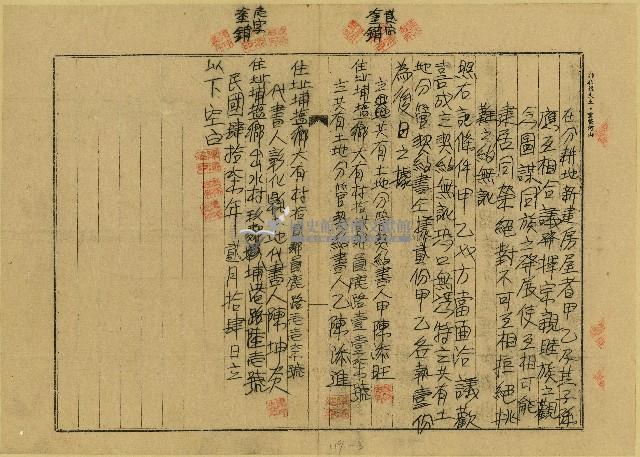 在分耕地新建房屋者甲乙及其子孫
應互相合議發揮宗親睦族之觀
念圖謀同族之發展使互相可能
建居同榮絕對不可互相拒絕挑
難之約無訛
照右記條件甲乙双方當面洽議歡
喜成立契約無訛恐口無憑特立共有土
地分管契約書左樣貳份甲乙各執壹份
為後日之據
立共有土地分管契約書人甲陳添旺
住址埔鹽鄉大有村拾鄰員鹿路
立共有土地分管契約書人乙陳添進
住址埔鹽鄉大有村拾鄰員鹿路
代書人彰化縣土地代書人陳坤炎
住址埔鹽鄉出水村玖鄰埔港路陸壱號
民國肆拾年貳月拾肆日立
以下空白
塗銷
塗銷